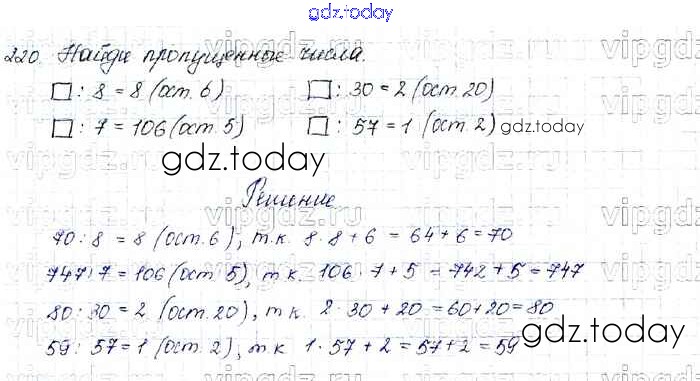 gdz.today
220. Найди пропущенные числа.
□ : 8 = 8 (ост. 6) □ : 30 = 2 (ост. 20)
□ : 7 = 106 (ост. 5) □ : 57 = 1 (ост. 2) gdz.today
gdz.today
Решение
70 : 8 = 8 (ост. 6), т.к. 8 · 8 + 6 = 64 + 6 = 70
747 : 7 = 106 (ост. 5), т.к. 106 · 7 + 5 = 742 + 5 = 747
80 : 30 = 2 (ост. 20), т.к. 2 · 30 + 20 = 60 + 20 = 80
gdz.today
59 : 57 = 1 (ост. 2), т.к. 1 · 57 + 2 = 57 + 2 = 59